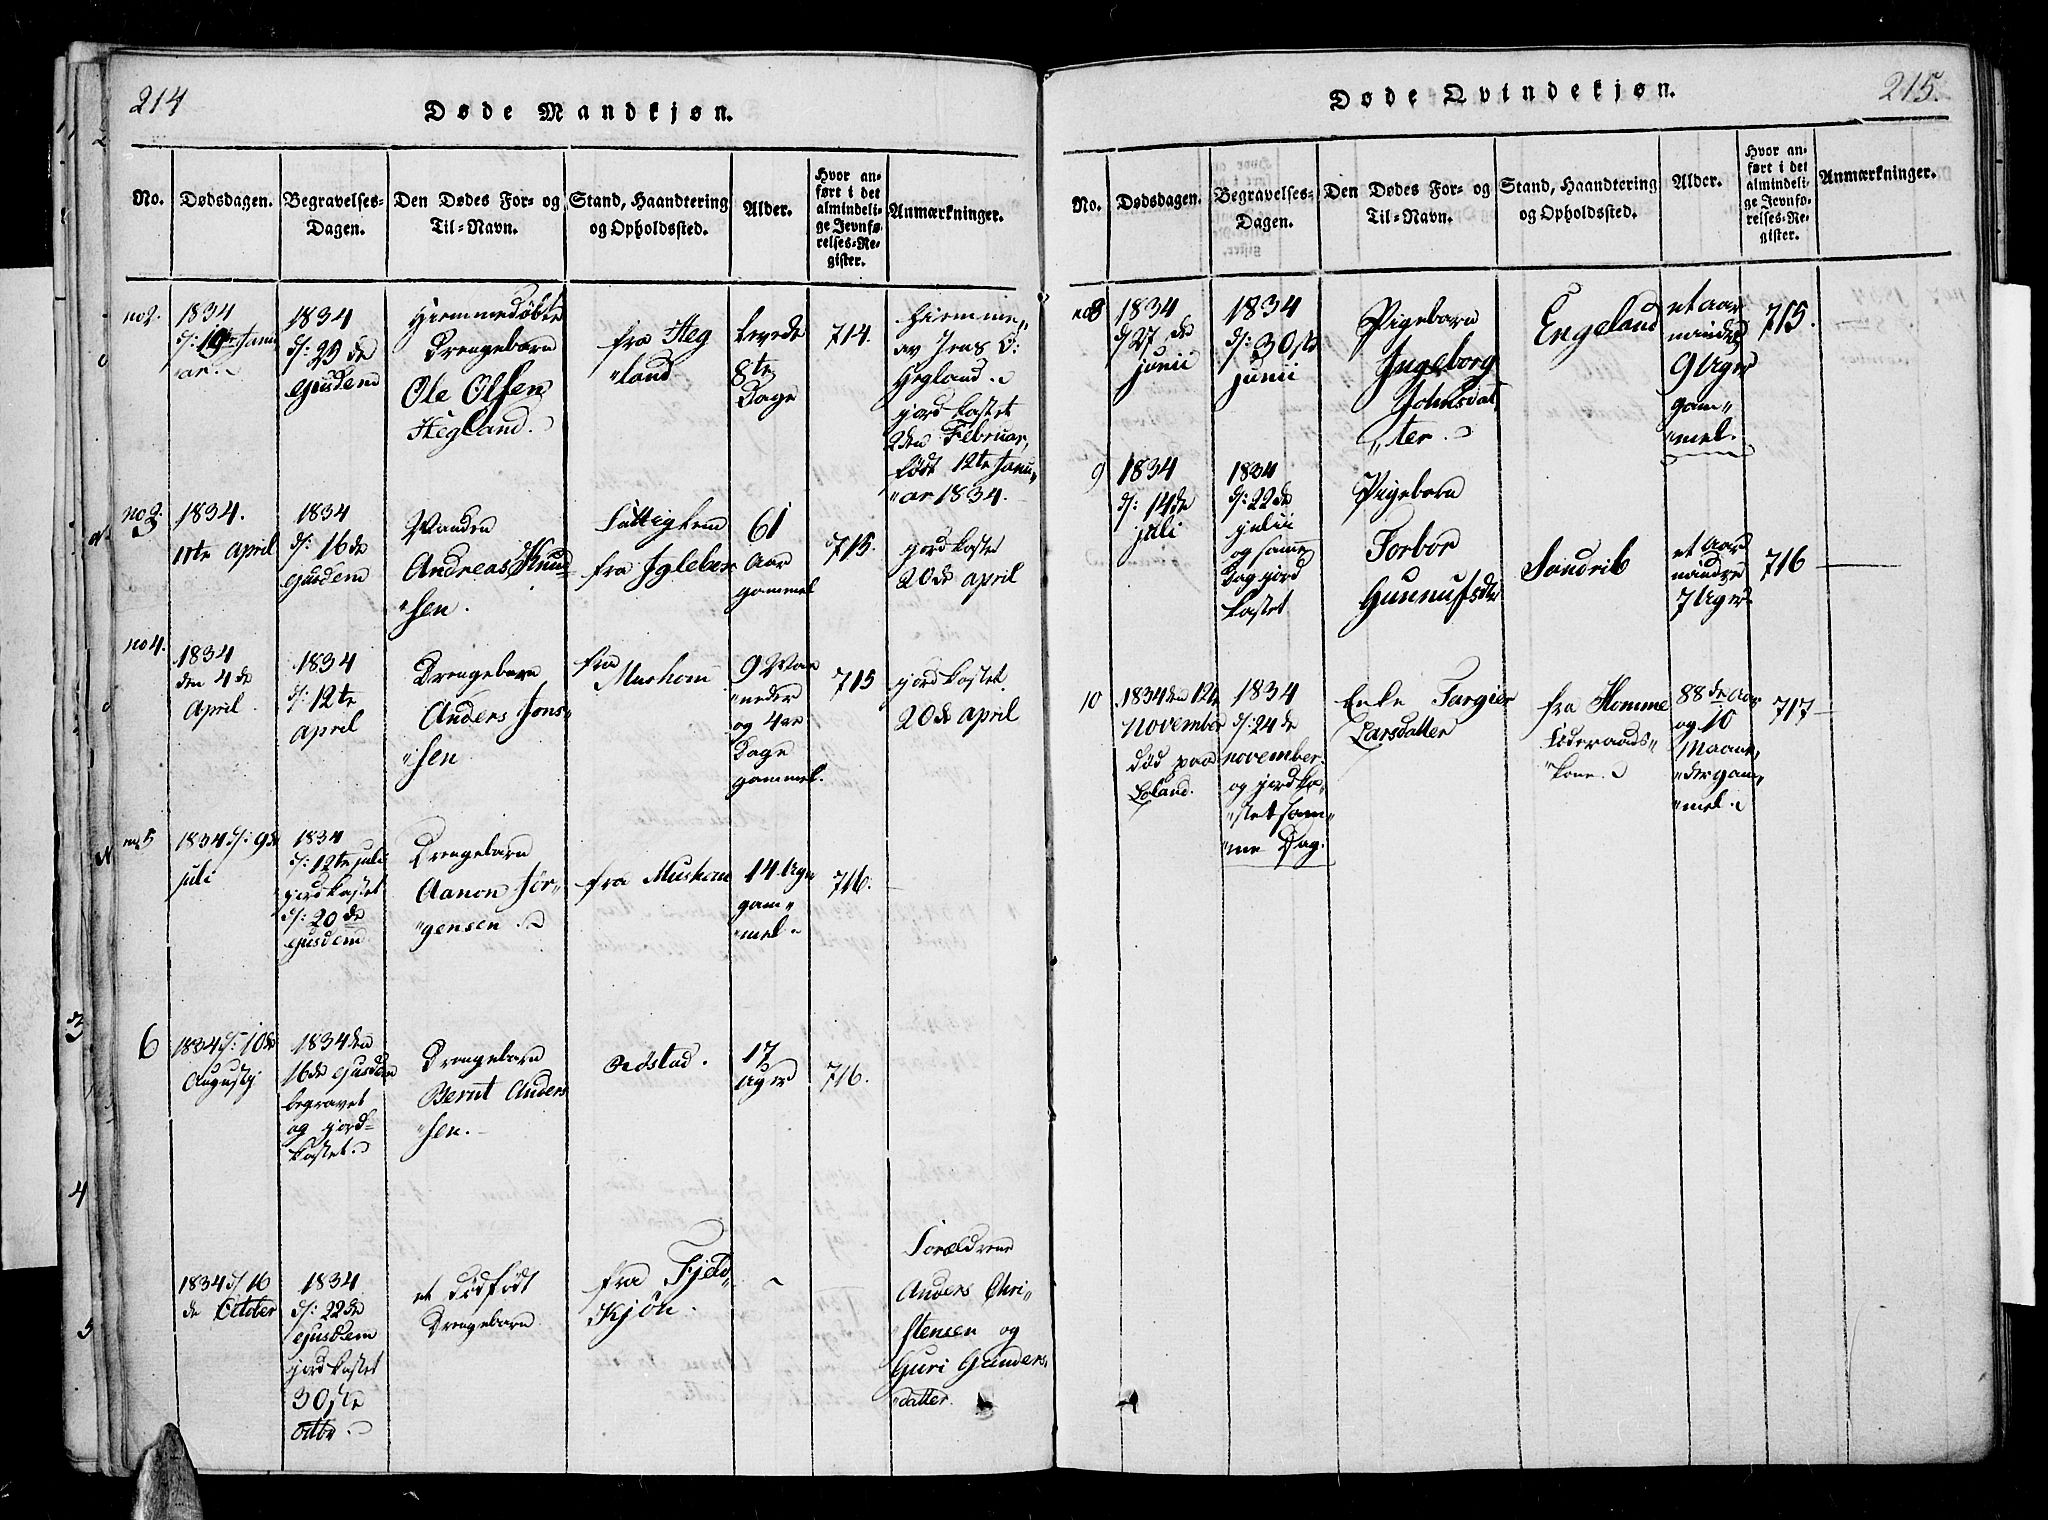 214
Døde Mandkjøn.
No.
Dødsdagen.
Begravelses-
Dagen.
Den Dødes For- og
Til-Navn.
Stand, Haandtering
og Opholdssted.
Alder.
Hvor an-
ført i det
almindeli-
ge Jevnfø-
relses-Re-
gister.
Anmærkninger.
no 2.
1834
d: 19de Janu
"ar.
1834
d: 29 de
ejusdem
Hiemmedøbte
Drengebarn
Ole Olsen
Hegland.
fra Heg
"land
levede
8te
Dage
714.
Hiemme"
av Jens O:
Hegland.
jordkastet
2den Februar,
født 12te Janu"
"ar 1834.
no 3
1834.
11te April
1834
d: 16de
ejusdem
Manden
Andreas Knud
"sen.
fattiglem
fra Iglebæk
61
Aar
gammel
715.
jordkastet
20de april
no 4.
1834
den 4de
April.
1834
d: 12te
April
Drengebarn
Anders Jons"
"sen
fra
Mushom
9 Maa
"neder
og 4re
Dage
gammel.
715
jordkastet.
20de april
no 5
1834 d: 9de
juli
1834
d: 12te juli
jordkastet
d: 20de
ejusdem
Drengebarn
Aanon Jør"
"gensen.
fra Mushom
14 Uger
gam"
"mel.
716.
6
1834 d: 10de
Augustj
1834 den
16de ejusdem
begravet
og jord-
kastet.
Drengebarn
Bernt Anders
"sen.
Rødstad.
17
Uger
716.
1834 d/ 16
de October
1834
d: 22de
ejusdem
jordkastet
30ste
octbr.
et dødfødt
Drengebarn
fra Fjeld"
Kjøn.
Forældrene
Anders Chri"
"stensen og
Guri Gunders"
"datter.
215.
Døde Qvindekjøn.
No.
Dødsdagen.
Begravelses-
Dagen.
Den Dødes For- og
Til-Navn.
Stand, Haandtering
og Opholdssted.
Alder.
Hvor an-
ført i det
almindeli-
ge Jevnfø-
relses-Re-
gister.
Anmærkninger.
no 8
1834
d/ 27 de
junii
1834
d: 30ste
junii
Pigebarn
Ingeborg
Johnsdat
"ter.
Engeland
et Aar
mindre
9 Uger
gam"
"mel.
715.
9
1834
d: 14de
juli
1834
d: 22de
julii
og samme
Dag jord
kastet
Pigebarn
Torbor
Gunnufsdtr
Sandrib
et Aar
mindre
7 Uger.
716
10
1834 den 12te
November
død paa
Loland.
1834
d: 24de
november.
og jordka"
"stet sam"
"me Dag.
Enke Targier
Larsdatter
fra Homme
Føderaads"
"kone.
88de Aar
og 10
Maane"
"der gam"
"mel.
717